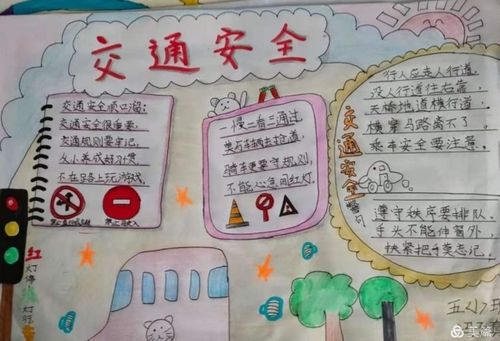 交通安全
交通安全顺口溜:
交通安全很重要,
交通规则要牢记,
从小养成好习惯,
不在马路上玩游戏。
一慢二看三通过,
莫与车辆去抢道,
骑车更要守规则,
不能心急闯红灯。
交通安全警句
行人应走人行道,
没人行道往右靠,
天桥地道横行道,
横穿马路离不了,
乘车安全要注意,
遵守秩序要排队,
手头不能伸窗外,
扶紧把手莫忘记。
红灯停
绿灯行
美篇